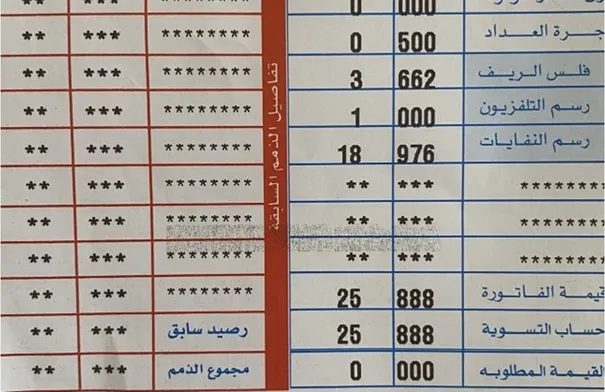 000 0
جرة العداد 500 0 ******** *** **
فلس الريف 662 3 ******** *** **
رسم التلفزيون 000 1 ******** *** **
رسم النفايات 976 18 ******** *** **
******** *** ** ******** *** **
******** *** ** ******** *** **
******** *** ** ******** *** **
قيمة الفاتورة 888 25 ******** *** **
حساب التسوية 888 25 رصيد سابق *** **
القيمة المطلوبه 000 0 مجموع الذمم *** **
تفاصيل الذمم السابقة